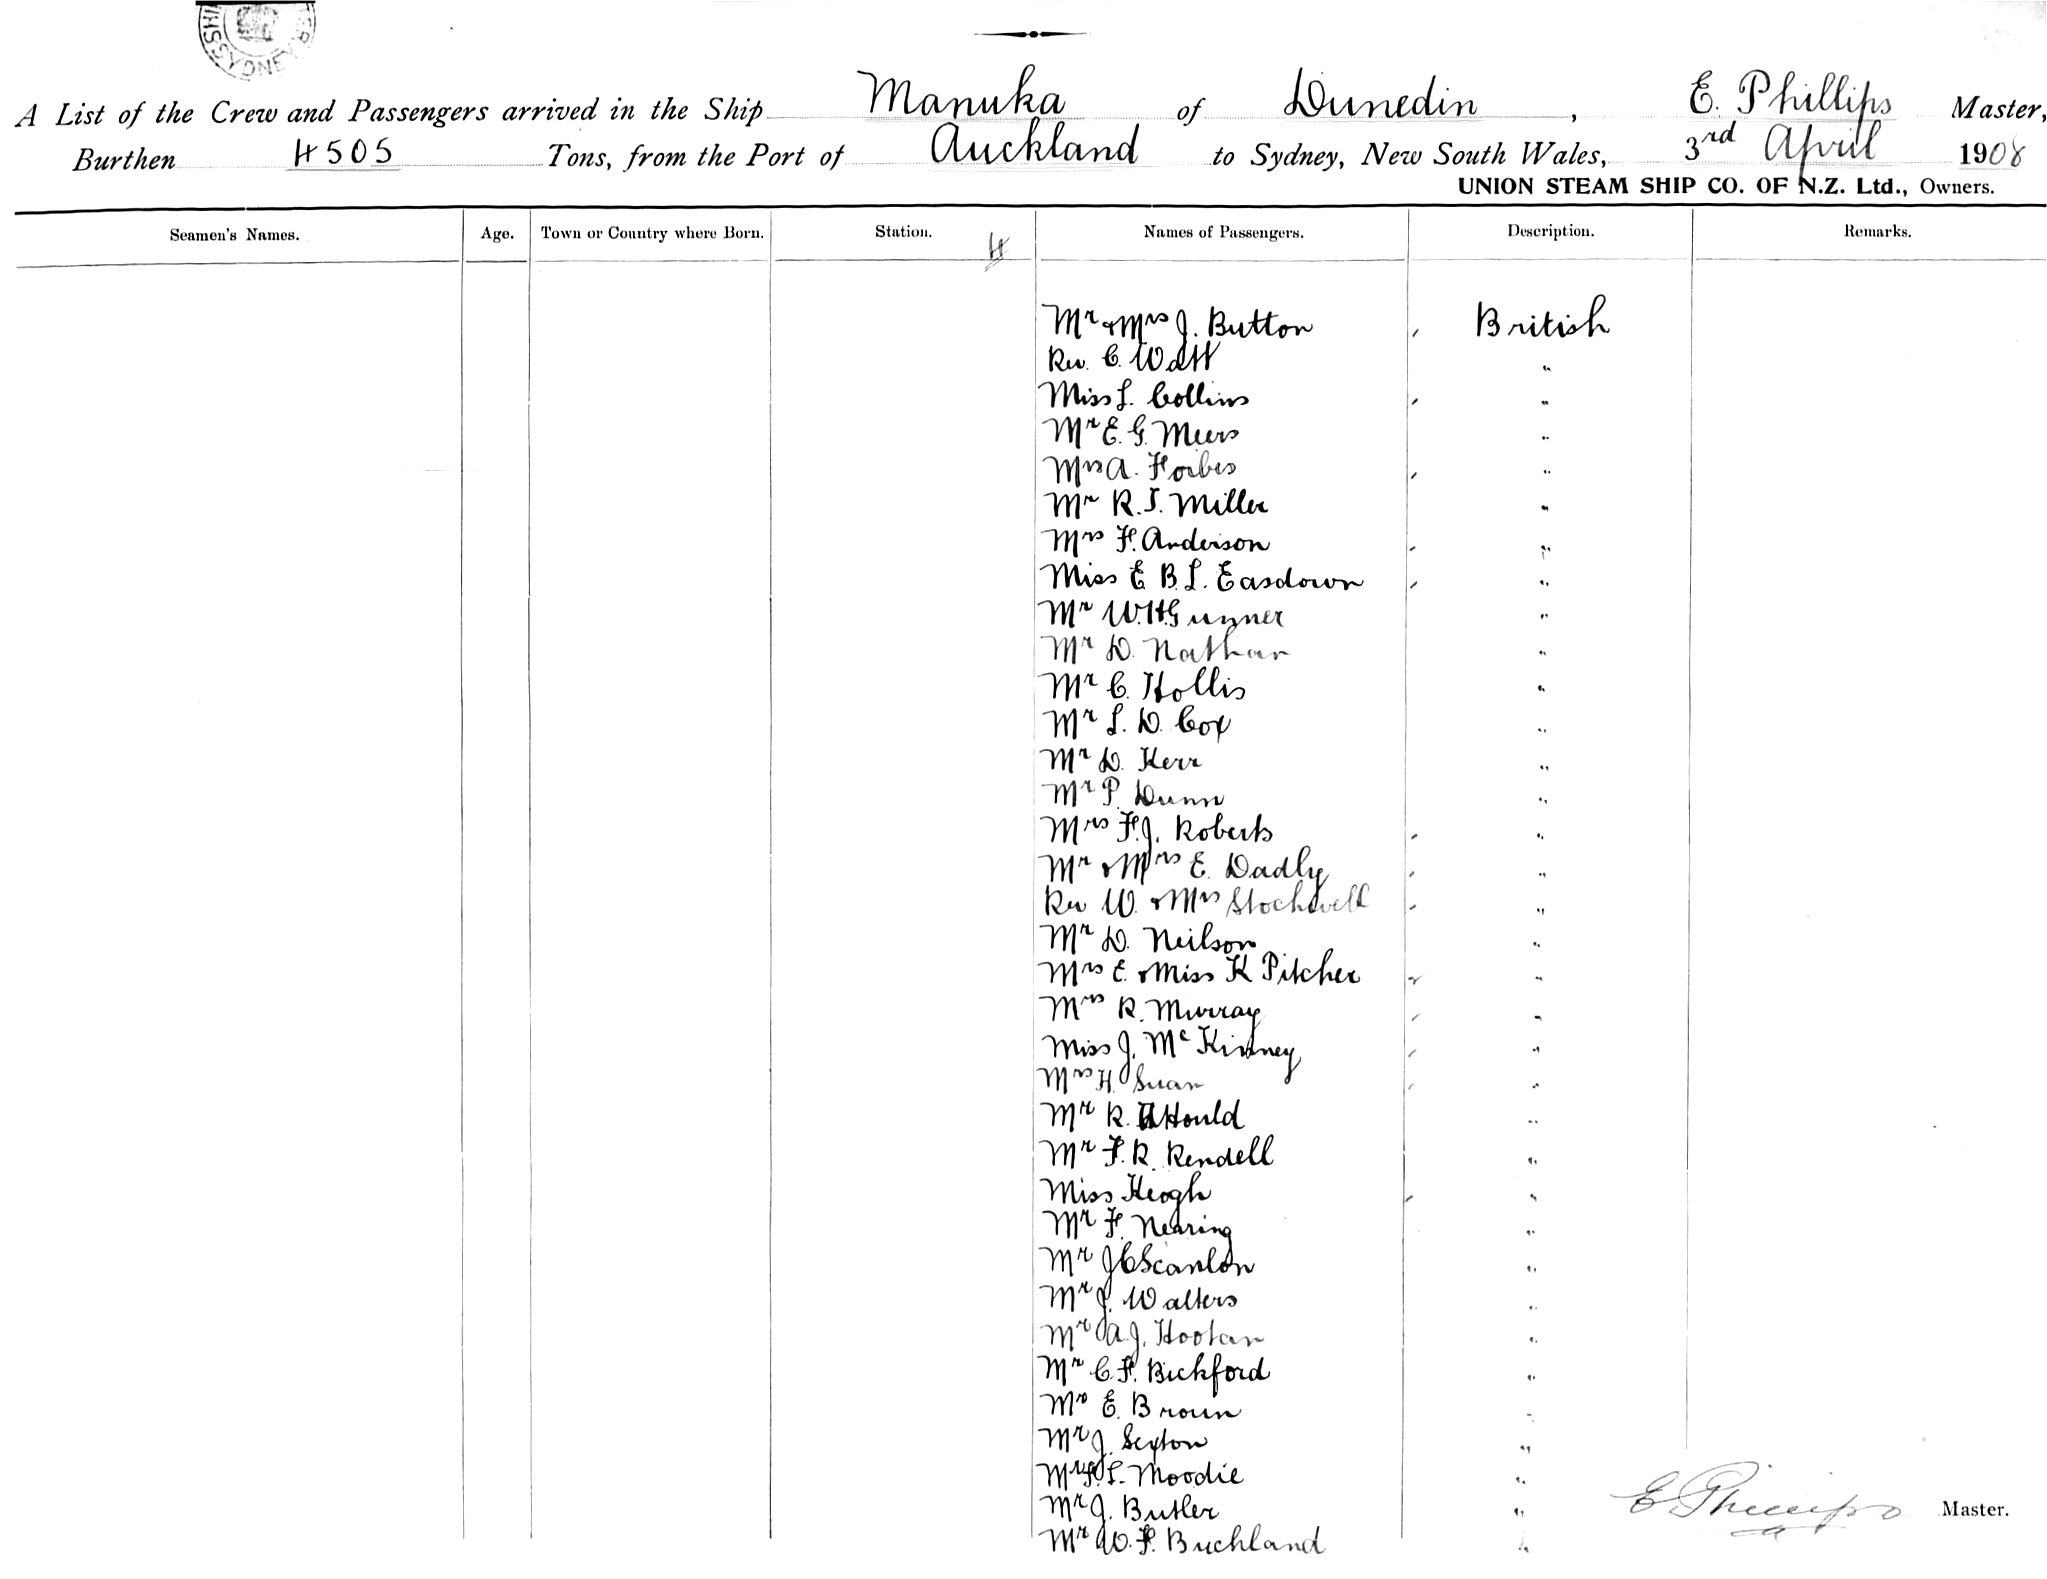 SYDNEY
A List of the Crew and Passengers arrived in the Ship Manuka of Dunedin, E. Phillips Master,
Burthen 4505 Tons, from the Port of Auckland to Sydney, New South Wales, 3rd April 1908
UNION STEAM SHIP CO. OF N.Z. Ltd., Owners.
Seamen's Names. Age. Town or Country where Born. Station. 4 Names of Passengers. Description. Remarks.
Mr & Mrs J. Button British
Rev. C. Watt "
Miss L. Collins "
Mr E. G. Meers "
Mrs A. Forbes "
Mr R. J. Miller "
Mrs F. Anderson "
Miss E B. L. Easdown "
Mr W. H. Gunner "
Mr D. Nathan "
Mr C. Hollis "
Mr L. D. Cox "
Mr D. Kerr "
Mr P. Dunn "
Mrs F. J. Roberts "
Mr & Mrs E. Dadly "
Rev W. & Mrs Stockwell "
Mr D. Neilson "
Mrs E. & Miss K Pitcher "
Mrs R. Murray "
Miss J. McKinney "
Mrs H. Suan "
Mr R. Hould "
Mr F. R. Rendell "
Miss Keogh "
Mr F. Nearing "
Mr J C Scanlon "
Mr J. Walters "
Mr A. J. Hootan "
Mr C. F. Bickford "
Mr E. Broun "
Mr J. Sexton "
L. Moodie "
Mr J. Butler "
Mr W. F. Buckland "
E. Phillips Master.